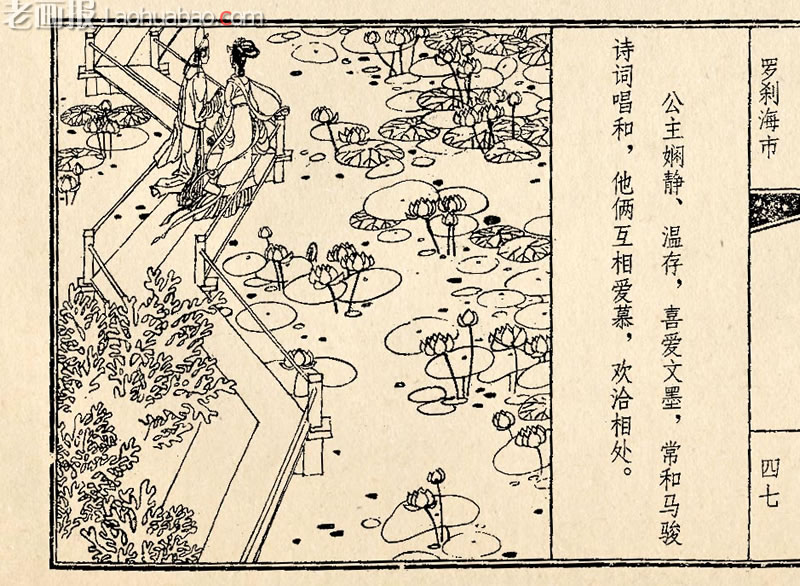 老画报
laohuabao.com
罗刹海市
公主娴静、温存，喜爱文墨，常和马骏
诗词唱和，他俩互相爱慕，欢洽相处。
四七